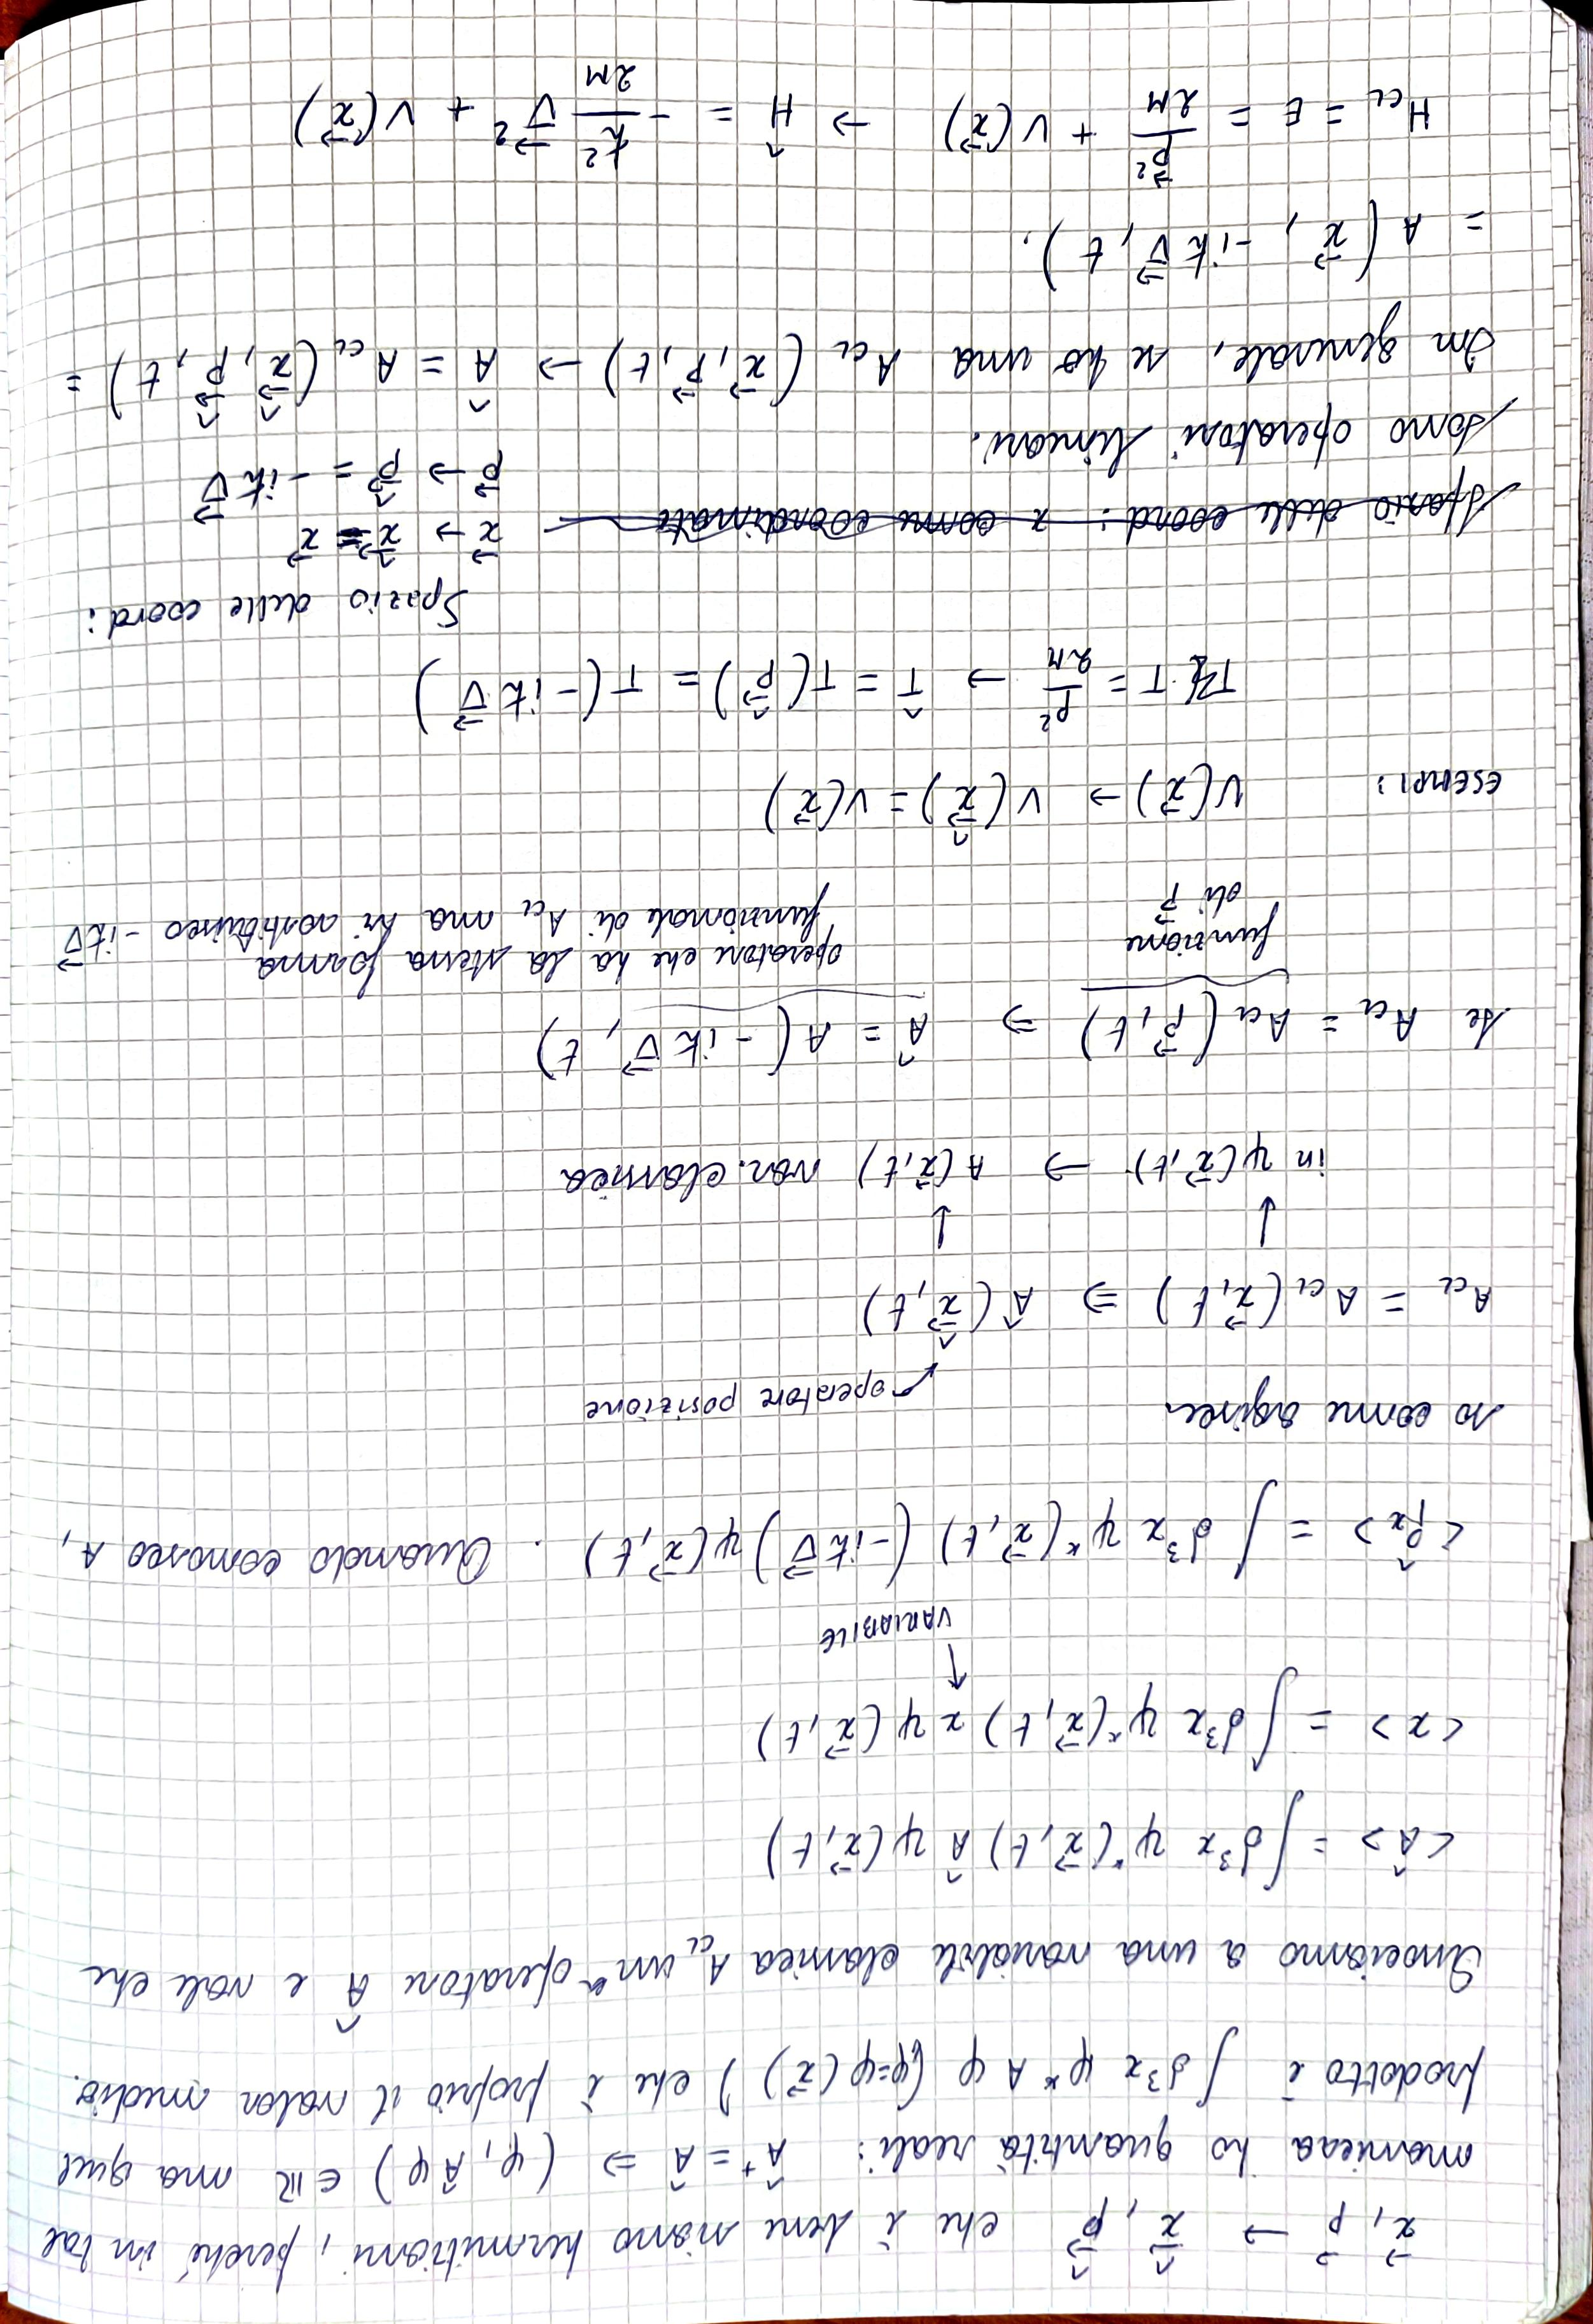 x⃗, p⃗ → x̂⃗, p̂⃗ che è bene siano hermitiani, perché in tal
maniera ho quantità reali: Â⁺ = Â ⇒ (φ, Âφ) ∈ ℝ ma quel
prodotto è ∫ d³x φ* A φ (φ=φ(x⃗)) che è proprio il valor medio.
Associamo a una variabile classica A_cl un operatore Â e vale che
<Â> = ∫ d³x ψ*(x⃗,t) Â ψ(x⃗,t)
<x> = ∫ d³x ψ*(x⃗,t) x ψ(x⃗,t)
↑
VARIABILE
<p̂_x> = ∫ d³x ψ*(x⃗,t) (-iħ∇⃗) ψ(x⃗,t). Quando conosco A,
so come agisce.
operatore posizione
A_cl = A_cl(x⃗,t) ⇒ Â(x̂⃗,t)
↓ ↓
in ψ(x⃗,t) → A(x⃗,t) var. classica
Se A_cl = A_cl(p⃗,t) ⇒ Â = A(-iħ∇⃗, t)
funzione di p⃗
operatore che ha la stessa forma
funzionale di A_cl ma vi sostituisco -iħ∇⃗
ESEMPI: V(x⃗) → V(x̂⃗) = V(x⃗)
T = p²/2M → T̂ = T(p̂⃗) = T(-iħ∇⃗)
Spazio delle coord:
Spazio delle coord: x come coordinata
x⃗ → x̂⃗ = x⃗
p⃗ → p̂⃗ = -iħ∇⃗
sono operatori lineari.
In generale, se ho una A_cl(x⃗,p⃗,t) → Â = A_cl(x̂⃗,p̂⃗,t) =
= A(x⃗, -iħ∇⃗, t).
H_cl = E = p⃗²/2M + V(x⃗) → Ĥ = -ħ²/2M ∇⃗² + V(x⃗)